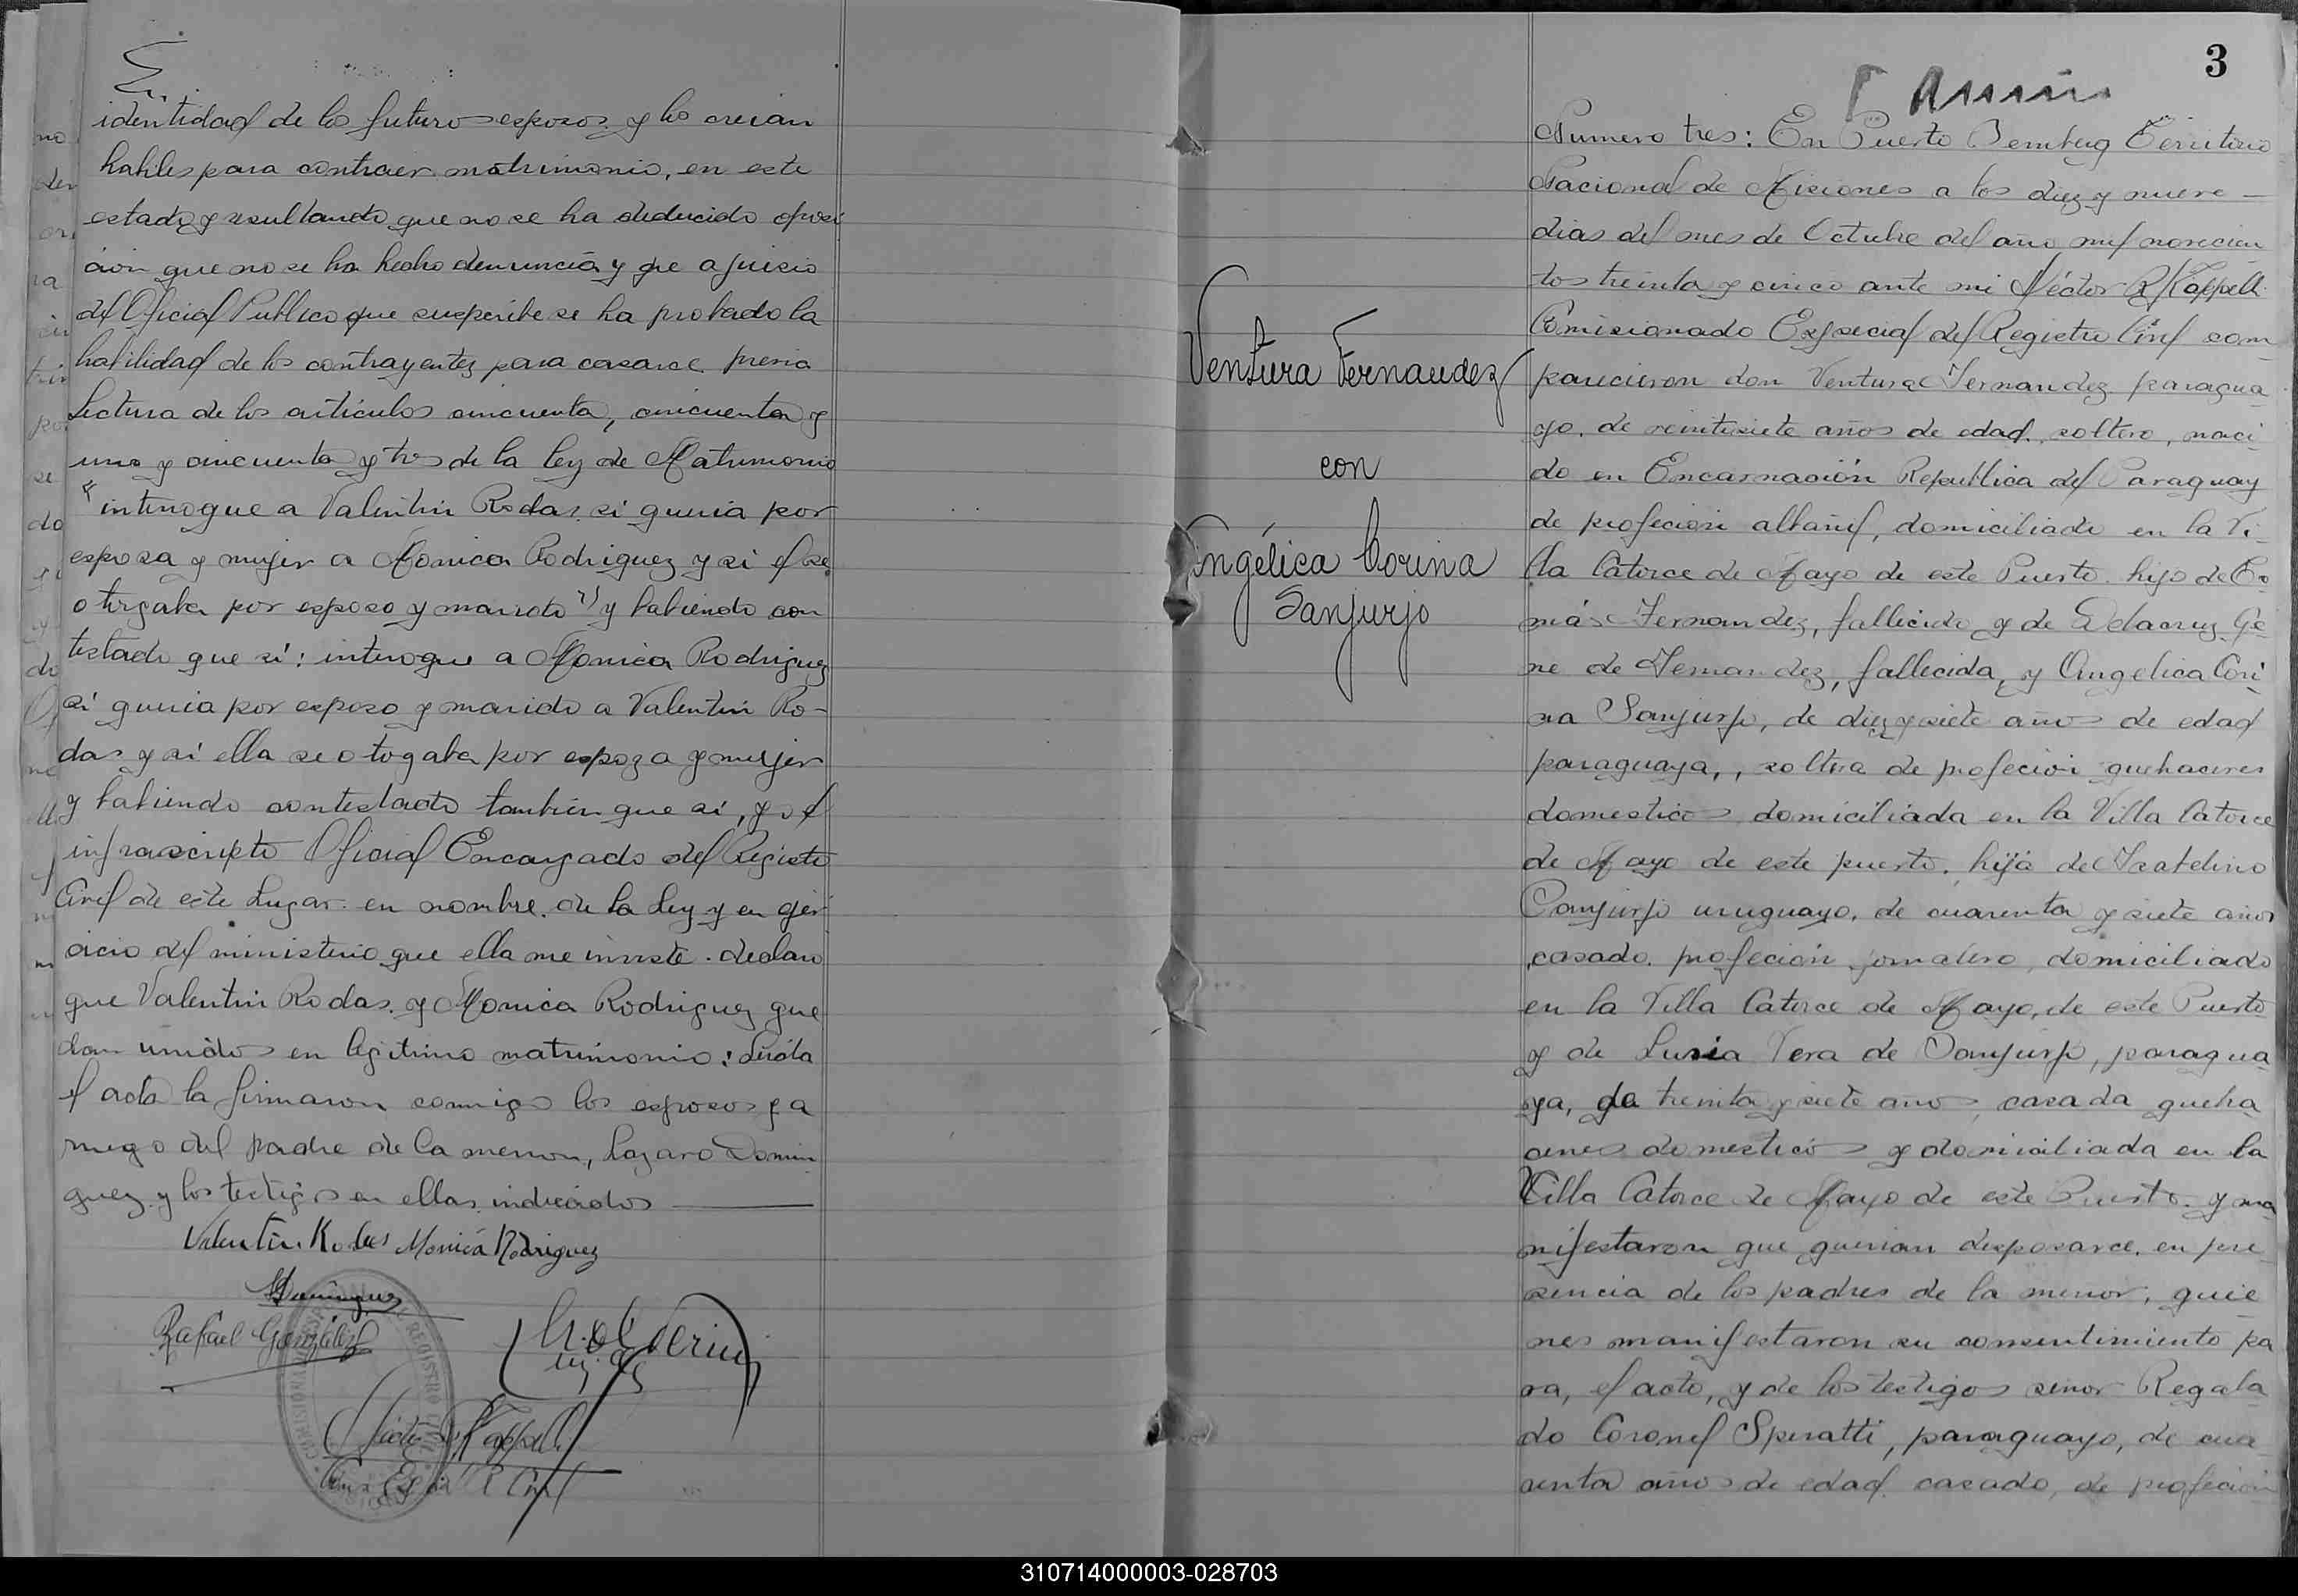 identidad de los futuros esposos y los creian
habiles para contraer matrimonio, en este
estado y resultando que no se ha deducido oposi
cion que no se ha hecho denuncia y que a juicio
del Oficial Publico que suscribe se ha probado la
habilidad de los contrayentes para casarce previa
Lectura de los articulos cincuenta, cincuenta y
uno y cincuenta y tres de la ley de Matrimonio
"interrogue a Valentin Rodas si queria por
esposa y mujer a Monica Rodriguez y si el se
otorgaba por esposo y marido" y habiendo con
testado que si: interrogue a Monica Rodriguez
si queria por esposo y marido a Valentin Ro-
das y si ella se otogaba por espoza y mujer
y habiendo contestado tambien que si, yo el
infrascripto Oficial Encargado del Registro
Civil de este Lugar en nombre de la Ley y en ejer
cicio del ministerio que ella me inviste declaro
que Valentin Rodas y Monica Rodriguez que
dan unidos en legitimo matrimonio: Leida
el acta la firmaron conmigo los esposos y a
ruego del padre de la menor, Lazaro Domin
guez y los testigos en ellas indicados
Valentin Rodas Monica Rodriguez
Dominguez
Rafael González
3
Ventura Fernandez
con
Angélica Corina
Sanjurjo
Numero tres: En Puerto Bemberg Territorio
Nacional de Misiones a los diez y nueve
dias del mes de Octubre del año mil novecien
tos treinta y cinco ante mi Héctor R. Kappelli
Comisionado Especial del Registro Civil com
parecieron don Ventura Fernandez paragua
yo, de veintisiete años de edad, soltero, naci
do en Encarnación Republica del Paraguay
de profecion albañil, domiciliado en la Vi-
lla Catorce de Mayo de este Puerto hijo de To
más Fernandez, fallecido y de Delacruz Ge
ne de Fernandez, fallecida, y Angelica Cori
na Sanjurjo, de diez y siete años de edad
paraguaya, soltera de profecion quehaceres
domesticos domiciliada en la Villa Catorce
de Mayo de este puerto, hija de Isabelino
Sanjurjo uruguayo, de cuarenta y siete años
casado, profecion jornalero, domiciliado
en la Villa Catorce de Mayo, de este Puerto
y de Lusia Vera de Sanjurjo, paragua
ya, de treinta y siete años, casada queha
ceres domesticos y domiciliada en la
Villa Catorce de Mayo de este Puerto y ma
nifestaron que querian desposarce, en pre
sencia de los padres de la menor, quie
nes manifestaron su consentimiento pa
ra, el acto, y de los testigos señor Regala
do Coronel Speratti, paraguayo, de cua
renta años de edad casado, de profecion
310714000003-028703